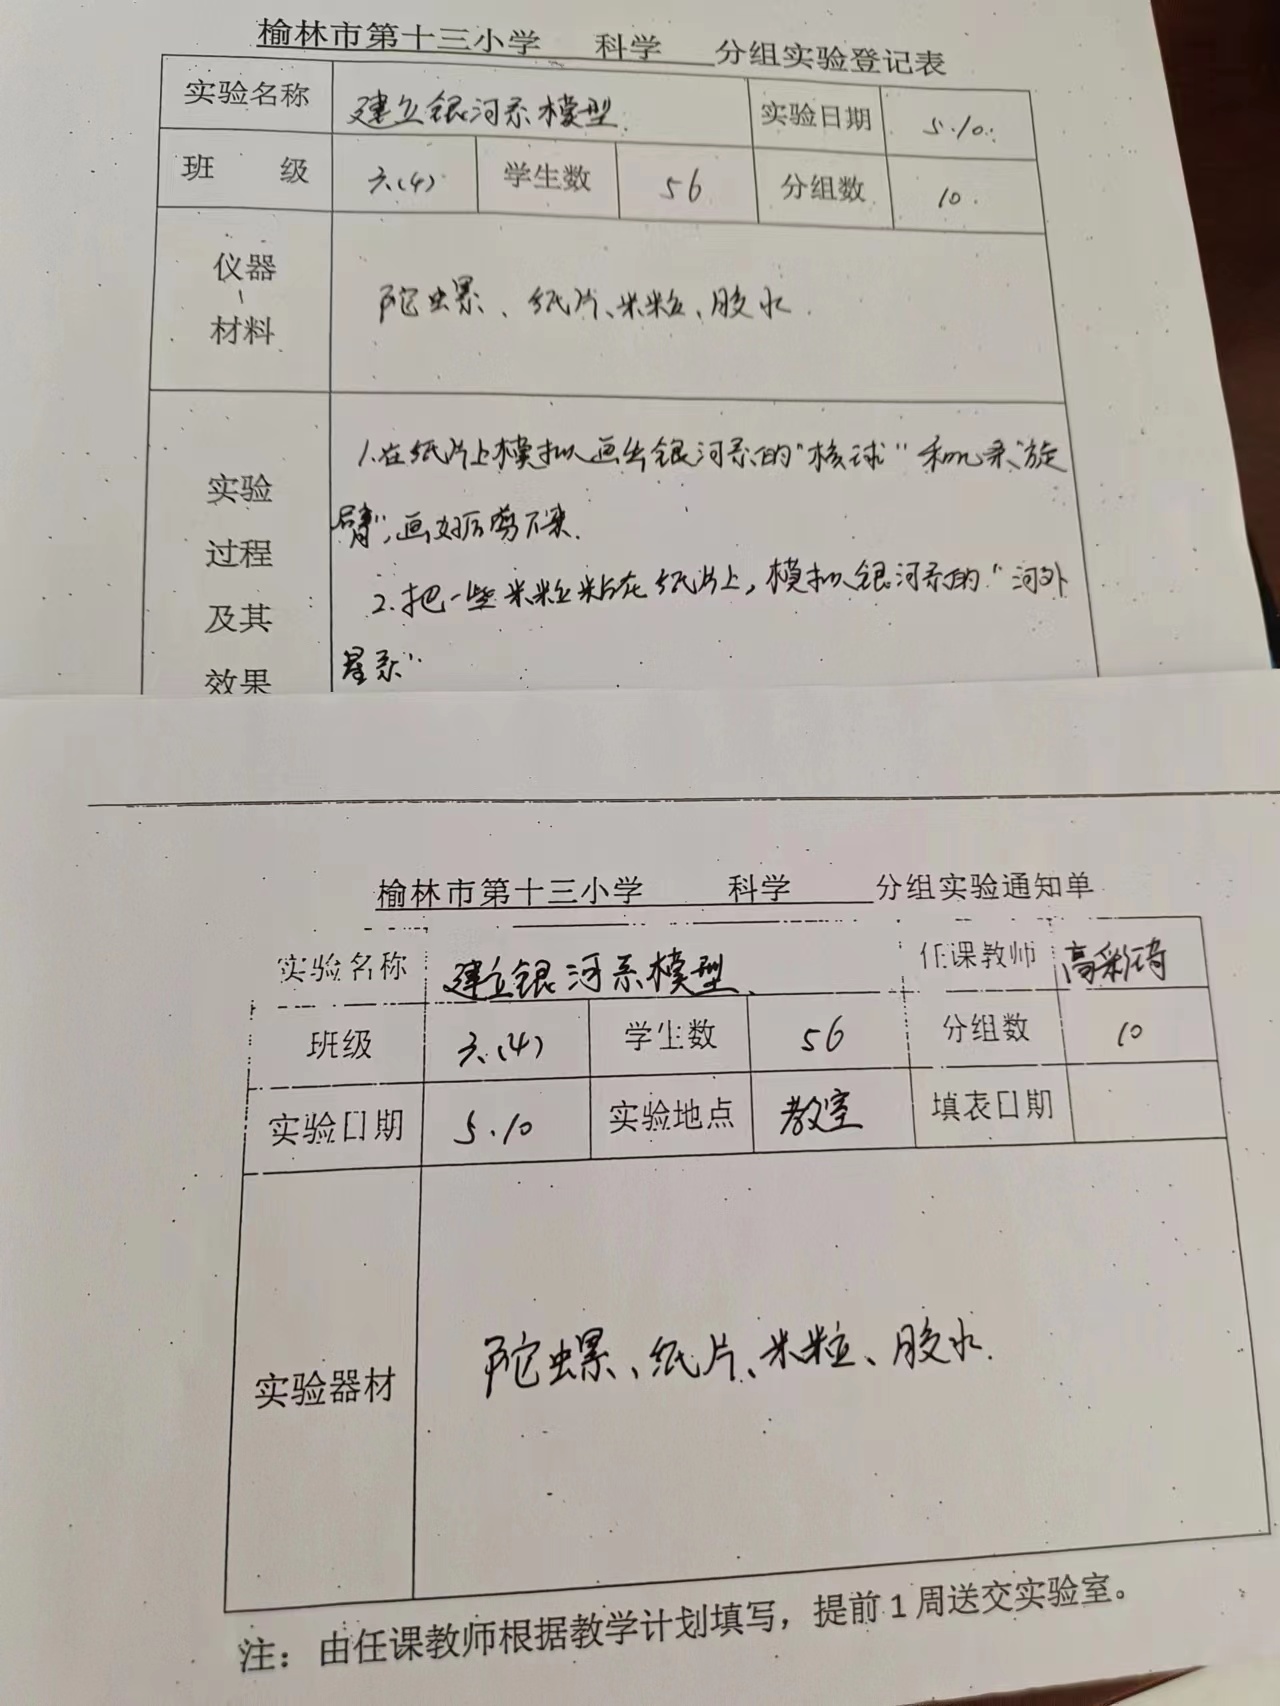 榆林市第十三小学 科学 分组实验登记表
实验名称 建立银河系模型. 实验日期 5.10.
班 级 六(4) 学生数 56 分组数 10.
仪器、材料 陀螺、纸片、米粒、胶水.
实验过程及其效果
1.在纸片上模拟画出银河系的“核球”和几条“旋
臂”,画好后剪下来.
2.把一些米粒粘在纸片上,模拟银河系的“河外
星系”.
榆林市第十三小学 科学 分组实验通知单
实验名称 建立银河系模型. 任课教师 高彩琦
班级 六(4) 学生数 56 分组数 10
实验日期 5.10 实验地点 教室 填表日期
实验器材 陀螺、纸片、米粒、胶水.
注：由任课教师根据教学计划填写，提前1周送交实验室。